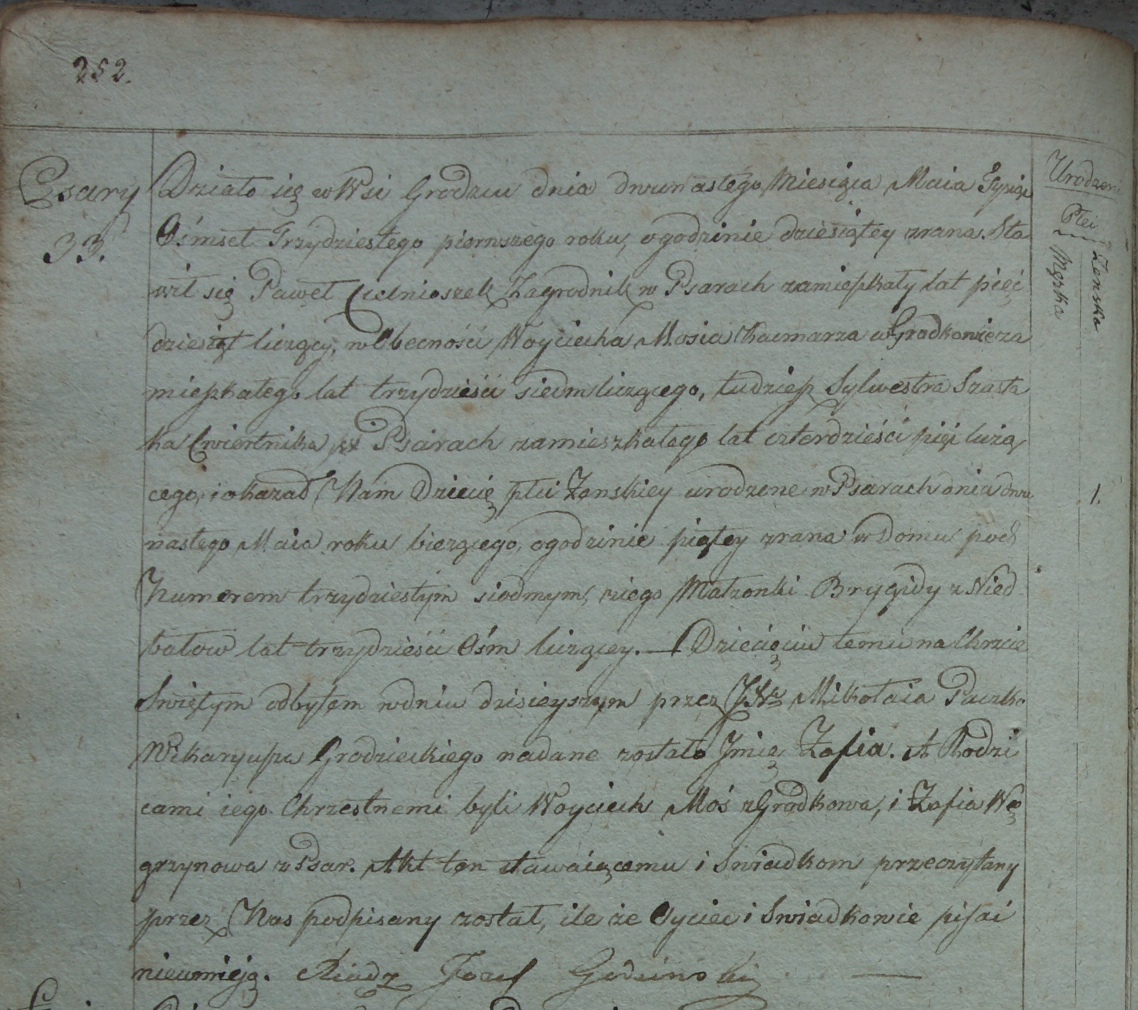 252.
Psary
33.
Urodzeni
Płci
Męzka
Zenska
Działo się w Wsi Grodzcu dnia dwunastego Miesiąca Maia Tysiąc
Ośmset Trzydziestego pierwszego roku, o godzinie dziesiątey zrana. Sta
wił się Paweł Cielnioszek Zagrodnik w Psarach zamieszkały lat pięć
dziesiąt liczący, w Obecności Woyciecha Mosia Karczmarza w Gradkowie za
mieszkałego lat trzydzieści siedm liczącego, tudziesz Sylwestra Szasta
ka Cwiertnika w Psarach zamieszkałego lat czterdzieści pięć liczą
cego, i okazał Nam Dziecię płci Zenskiey urodzone w Psarach dnia dwu
nastego Maia roku bieżącego, o godzinie piątey zrana w Domu pod
Numerem trzydziestym siodmym, z iego Małzonki Brygidy z Nied
bałow lat trzydzieści Ośm liczącey. — Dziecięciu temu na Chrzcie
Swiętym odbytem w dniu dzisieyszym przez Mikołaia
Wikaryusza Grodzieckiego nadane zostało Jmię Zofia. A Rodzi
cami iego Chrzestnemi byli Woyciech Moś z Gradkowa, i Zofia Wę
grzynowa z Psar. Akt ten stawaiącemu i Swiadkom przeczytany
przez Nas podpisany został, ile że Oyciec i Swiadkowie pisać
nieumieją. Xiądz Jozef Godzinski —
1.